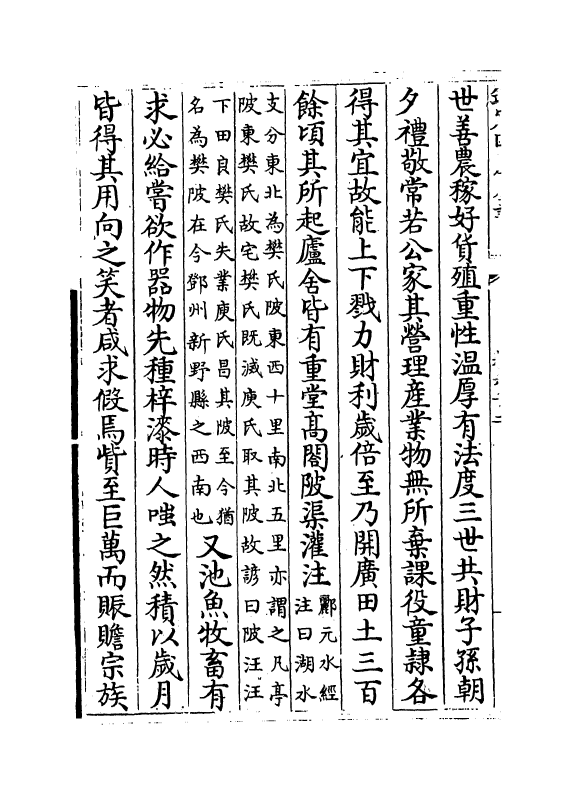 世善農稼好貨殖重性温厚有法度三世共財子孫朝
夕禮敬常若公家其營理産業物無所棄課役童隸各
得其宜故能上下戮力財利歲倍至乃開廣田土三百
餘頃其所起廬舍皆有重堂髙閣陂渠灌注
酈元水經
注曰湖水
支分東北為樊氏陂東西十里南北五里亦謂之凡亭
陂東樊氏故宅樊氏既滅庾氏取其陂故諺曰陂汪汪
下田良樊氏失業庾氏昌其陂至今猶
名為樊陂在今鄧州新野縣之西南也
又池魚牧畜有
求必給嘗欲作器物先種梓漆時人嗤之然積以歲月
皆得其用向之笑者咸求假焉貲至巨萬而賑贍宗族